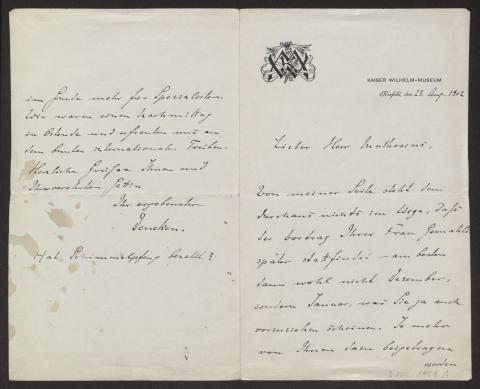 KAISER WILHELM-MUSEUM
Krefeld, den 23. Aug. 1902
Lieber Herr Muthesius,
Von meiner Seite steht dem
durchaus nichts im Wege, daß
der Vortrag Ihrer Frau Gemahlin
später stattfindet – am besten
dann wohl nicht Dezember,
sondern Januar, was Sie ja auch
vorzuziehen scheinen. Je mehr
von Ihnen dazu beigetragen
werden
im Grunde mehr für Spezialisten.
Wir waren einen Nachmittag
in Ostende und erfreuten uns an
dem bunten internationalen Treiben.
Herzliche Grüße Ihnen und
Ihrer verehrten Gattin
Ihr ergebenster
Deneken.
Hat Schimmelpfeng bezahlt?